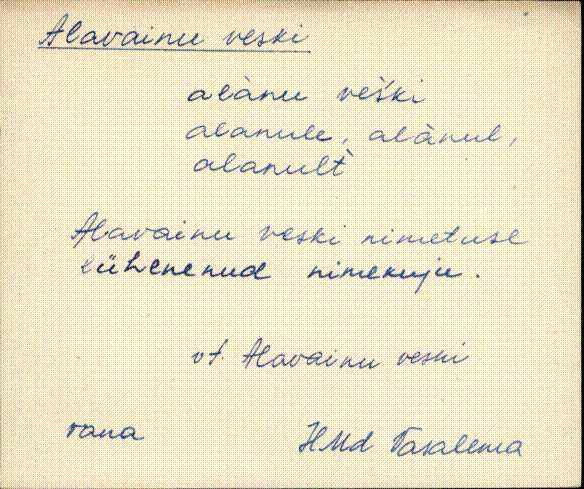 Alavainu veski
alànu veški
alanule, alànul,
alanult̀
Alavainu veski nimetuse
lühenenud nimekuju.
vt. Alavainu veski
vana HMd Vasalema